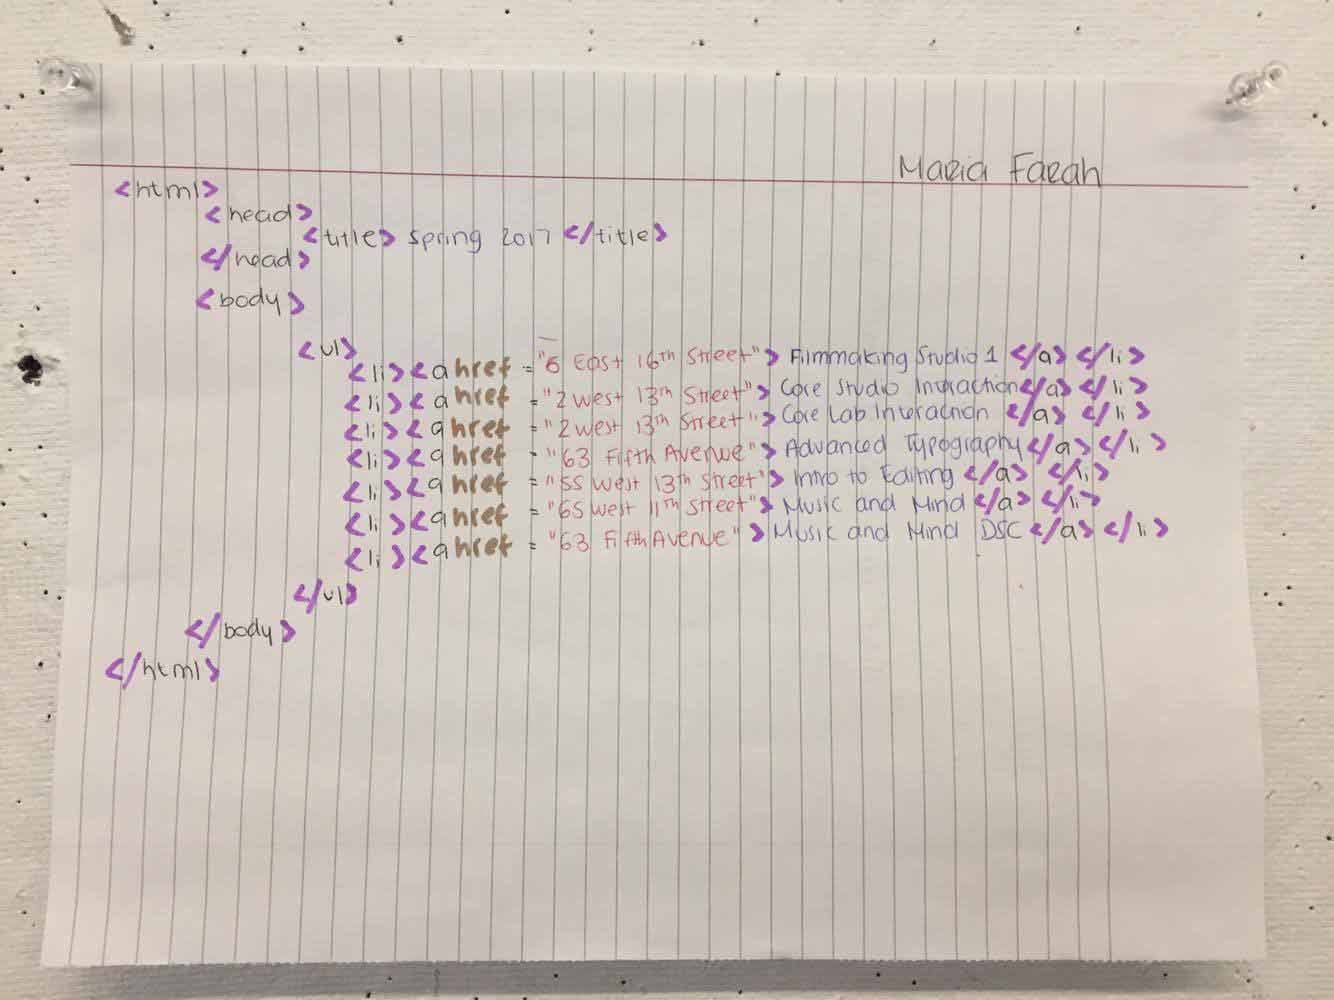 Maria Farah
<html>
<head>
<title> Spring 2017 </title>
</head>
<body>
<ul>
<li><a href = "6 East 16th Street"> Filmmaking Studio 1 </a> </li>
<li><a href = "2 West 13th Street"> Core Studio Interaction</a> </li>
<li><a href = "2 West 13th Street"> Core Lab Interaction </a> </li>
<li><a href = "63 Fifth Avenue"> Advanced Typography</a> </li>
<li><a href = "55 West 13th Street"> Intro to Editing </a> </li>
<li><a href = "65 West 11th Street"> Music and Mind </a> </li>
<li><a href = "63 Fifth Avenue"> Music and Mind DSC </a> </li>
</ul>
</body>
</html>